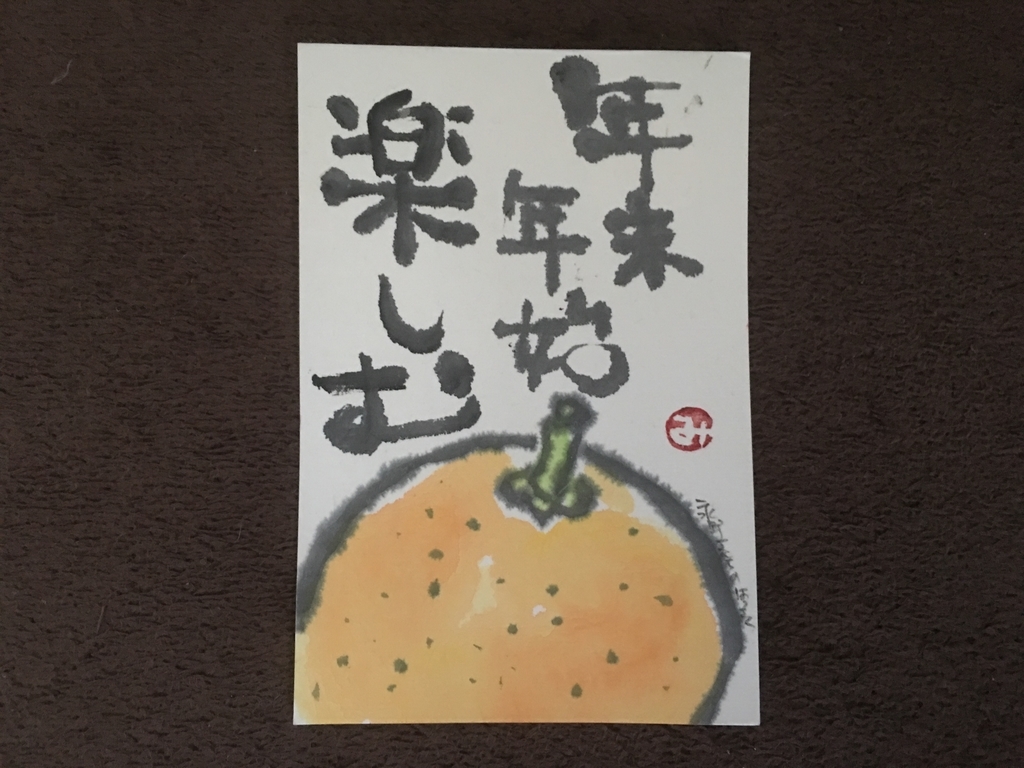 年末
年始
楽しむ
む